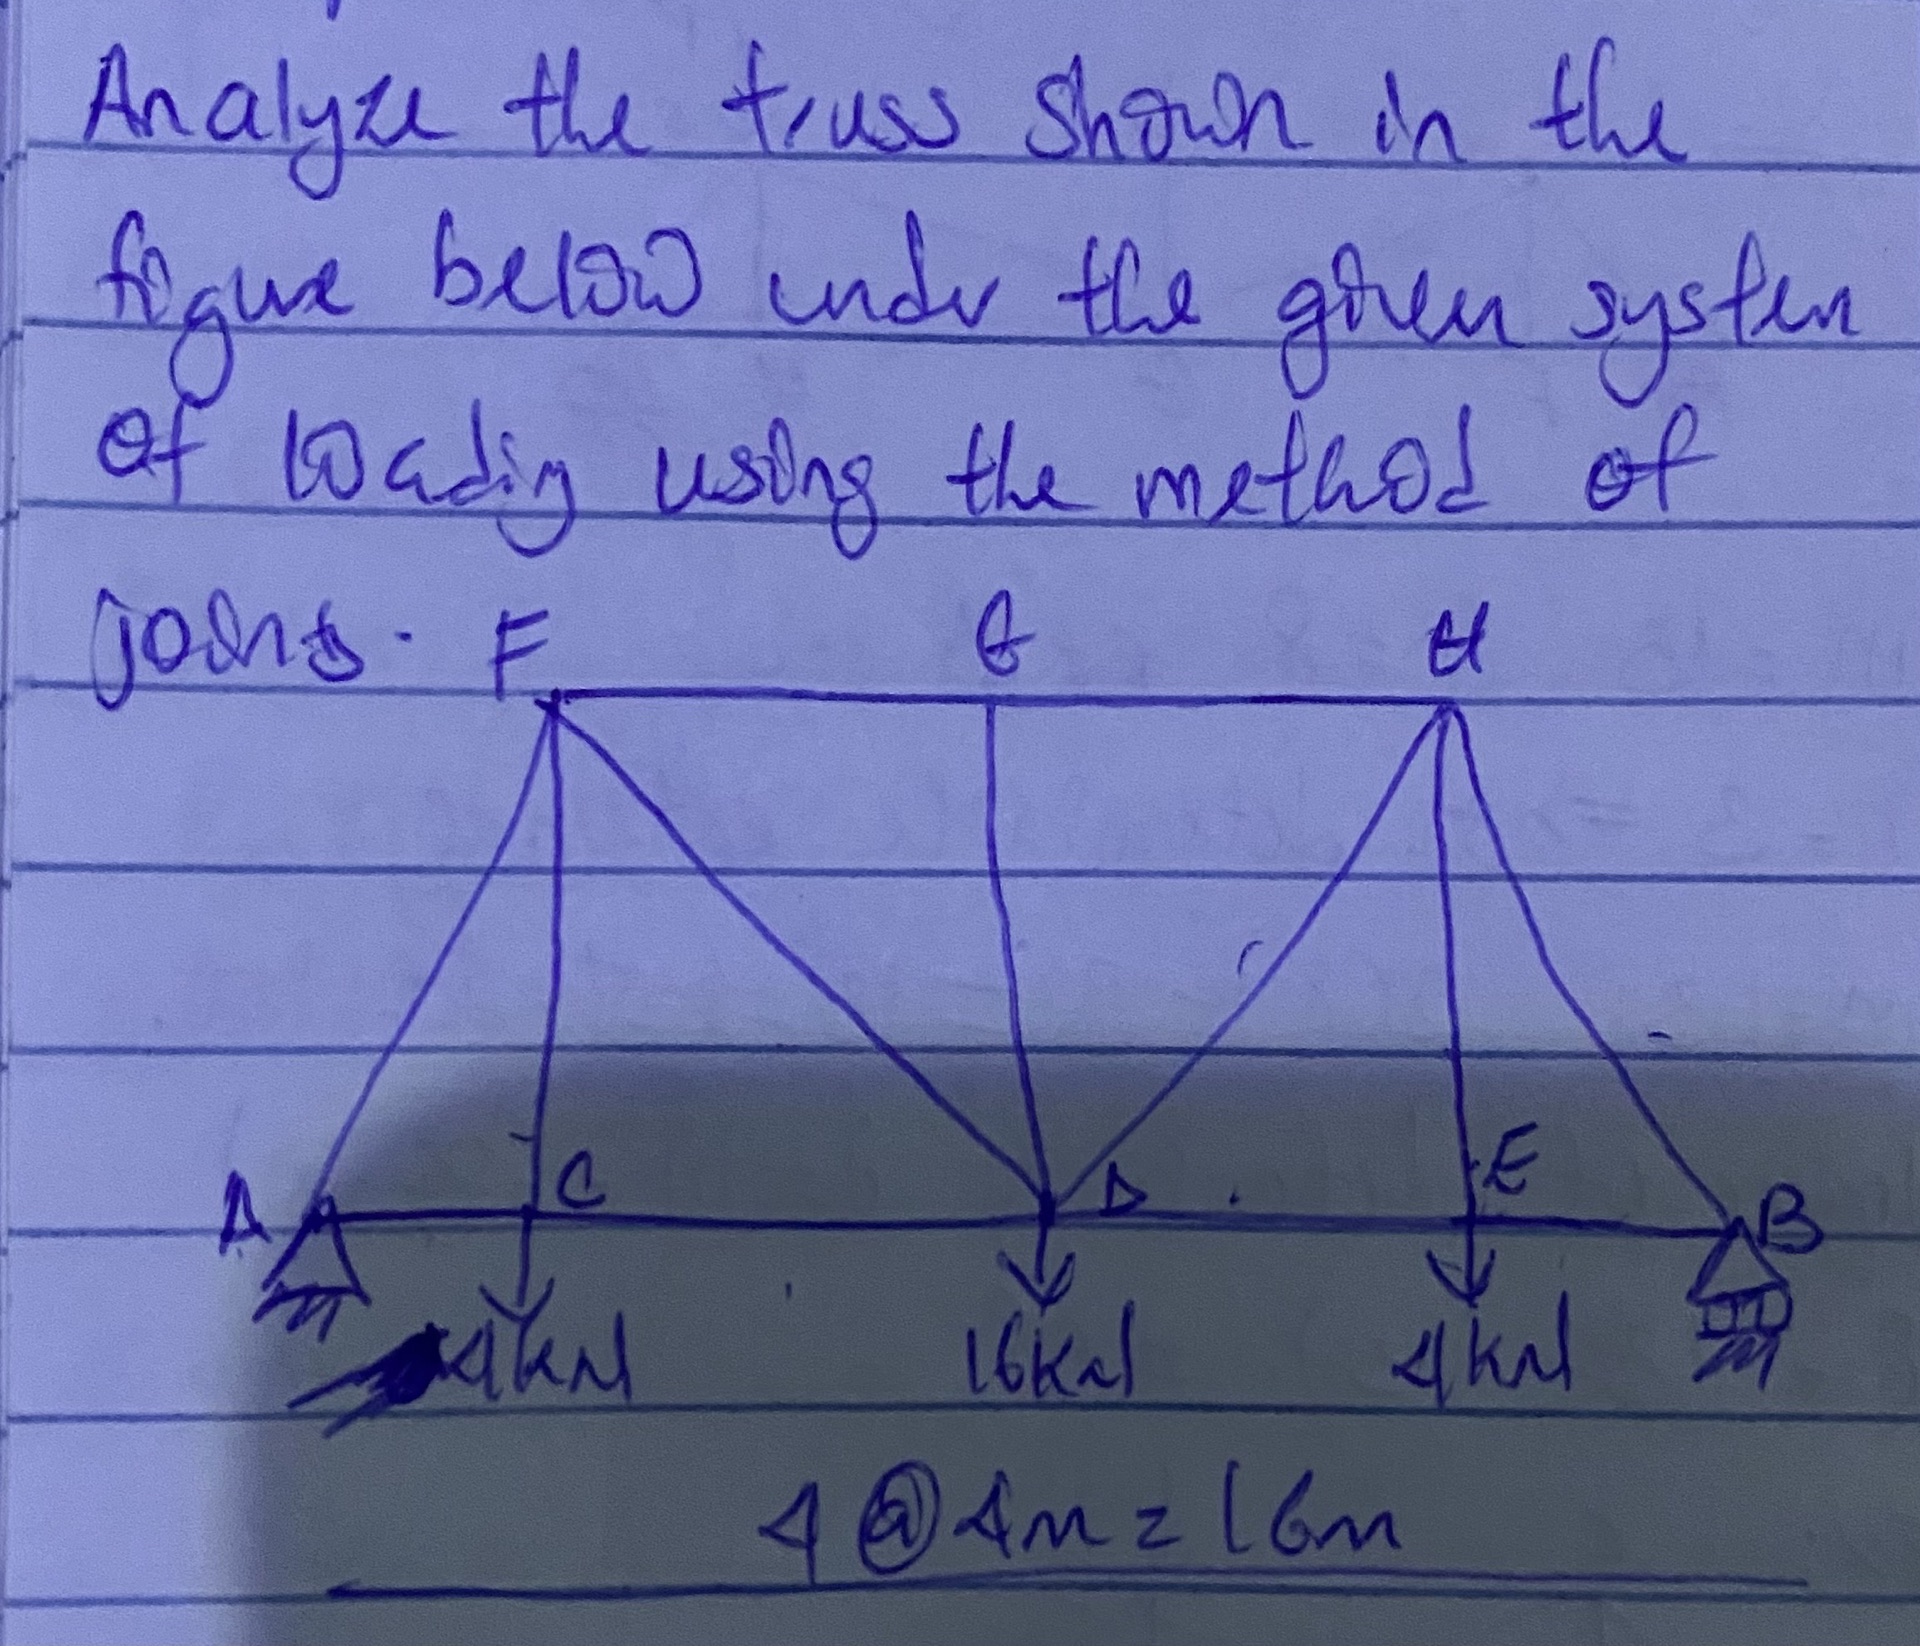 Analyze the truss shown in the
figure below under the given system
of loading using the method of
joints.
F G H
A C D E B
4kN 16kN 4kN
4 @ 4m = 16m